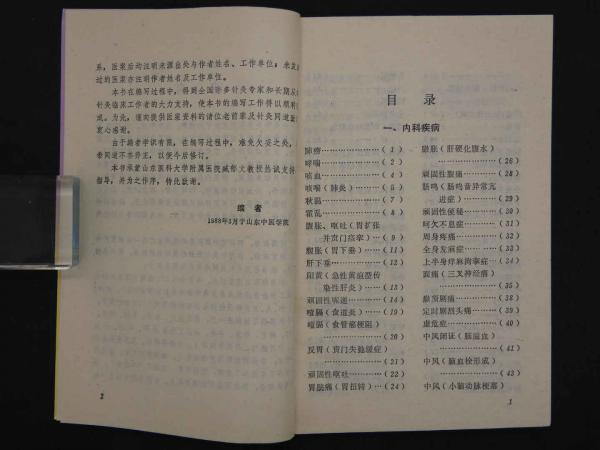 系，医案后均注明来源出处与作者姓名、工作单位；未发
过的医案亦注明作者姓名及工作单位。
本书在编写过程中，得到全国许多针灸专家和长期从
针灸临床工作者的大力支持，使本书的编写工作得以顺利
成。为此，谨向提供医案资料的诸位老前辈及针灸同道致
衷心感谢。
由于编者学识有限，在编写过程中，难免欠妥之处，
者同道不吝斧正，以便今后修订。
本书承蒙山东医科大学附属医院臧郁文教授热忱支持
指导，并为之作序，特此致谢。
编 者
1988年3月于山东中医学院
2
目 录
一、内科疾病
肺痨……（1）
哮喘……（2）
咳血……（4）
咳喘（肺炎）……（6）
秋弱……（7）
霍乱……（8）
腹胀、呕吐（胃扩张
并贲门痉挛）……（9）
腹胀（胃下垂）……（11）
肝下垂……（12）
阳黄（急性黄疸型传
染性肝炎）……（13）
顽固性呃逆……（14）
噎膈（食道炎）……（19）
噎膈（食管痉梗阻）
……（20）
反胃（贲门失弛缓症）
……（21）
顽固性呕吐……（22）
胃脘痛（胃扭转）…（24）
臌胀（肝硬化腹水）
……（26）
顽固性腹痛……（28）
肠鸣（肠鸣音异常亢
进症）……（29）
顽固性便秘……（30）
呵欠不息症……（31）
周身疼痛……（32）
全身发麻症……（33）
上半身痒麻拘挛症…（34）
面痛（三叉神经痛）
……（35）
巅顶剧痛……（38）
定时剧烈头痛……（39）
虚危症……（40）
中风闭证（脑溢血）
……（41）
中风（脑血栓形成）
……（43）
中风（小脑动脉梗塞）
1